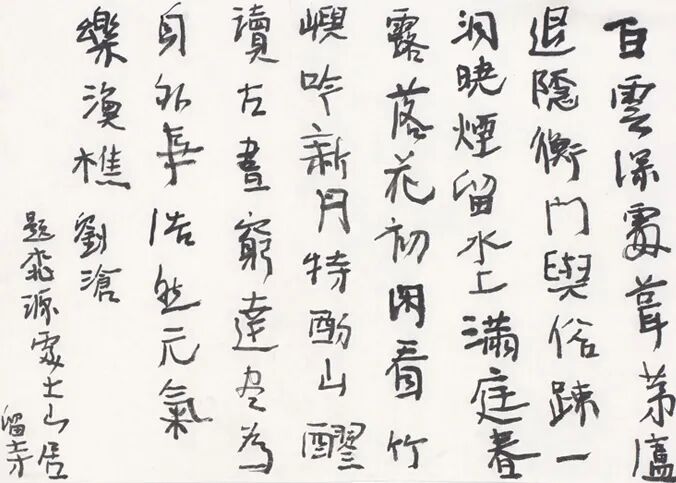 白雲深處葺茅廬
退隱衡門與俗踈一
洞曉煙留水上滿庭春
露落花初閑看竹
嶼吟新月特酌山醪
讀古書窮達尽為
身外事浩然元氣
樂漁樵 劉滄
題桃源處士山居
留寄